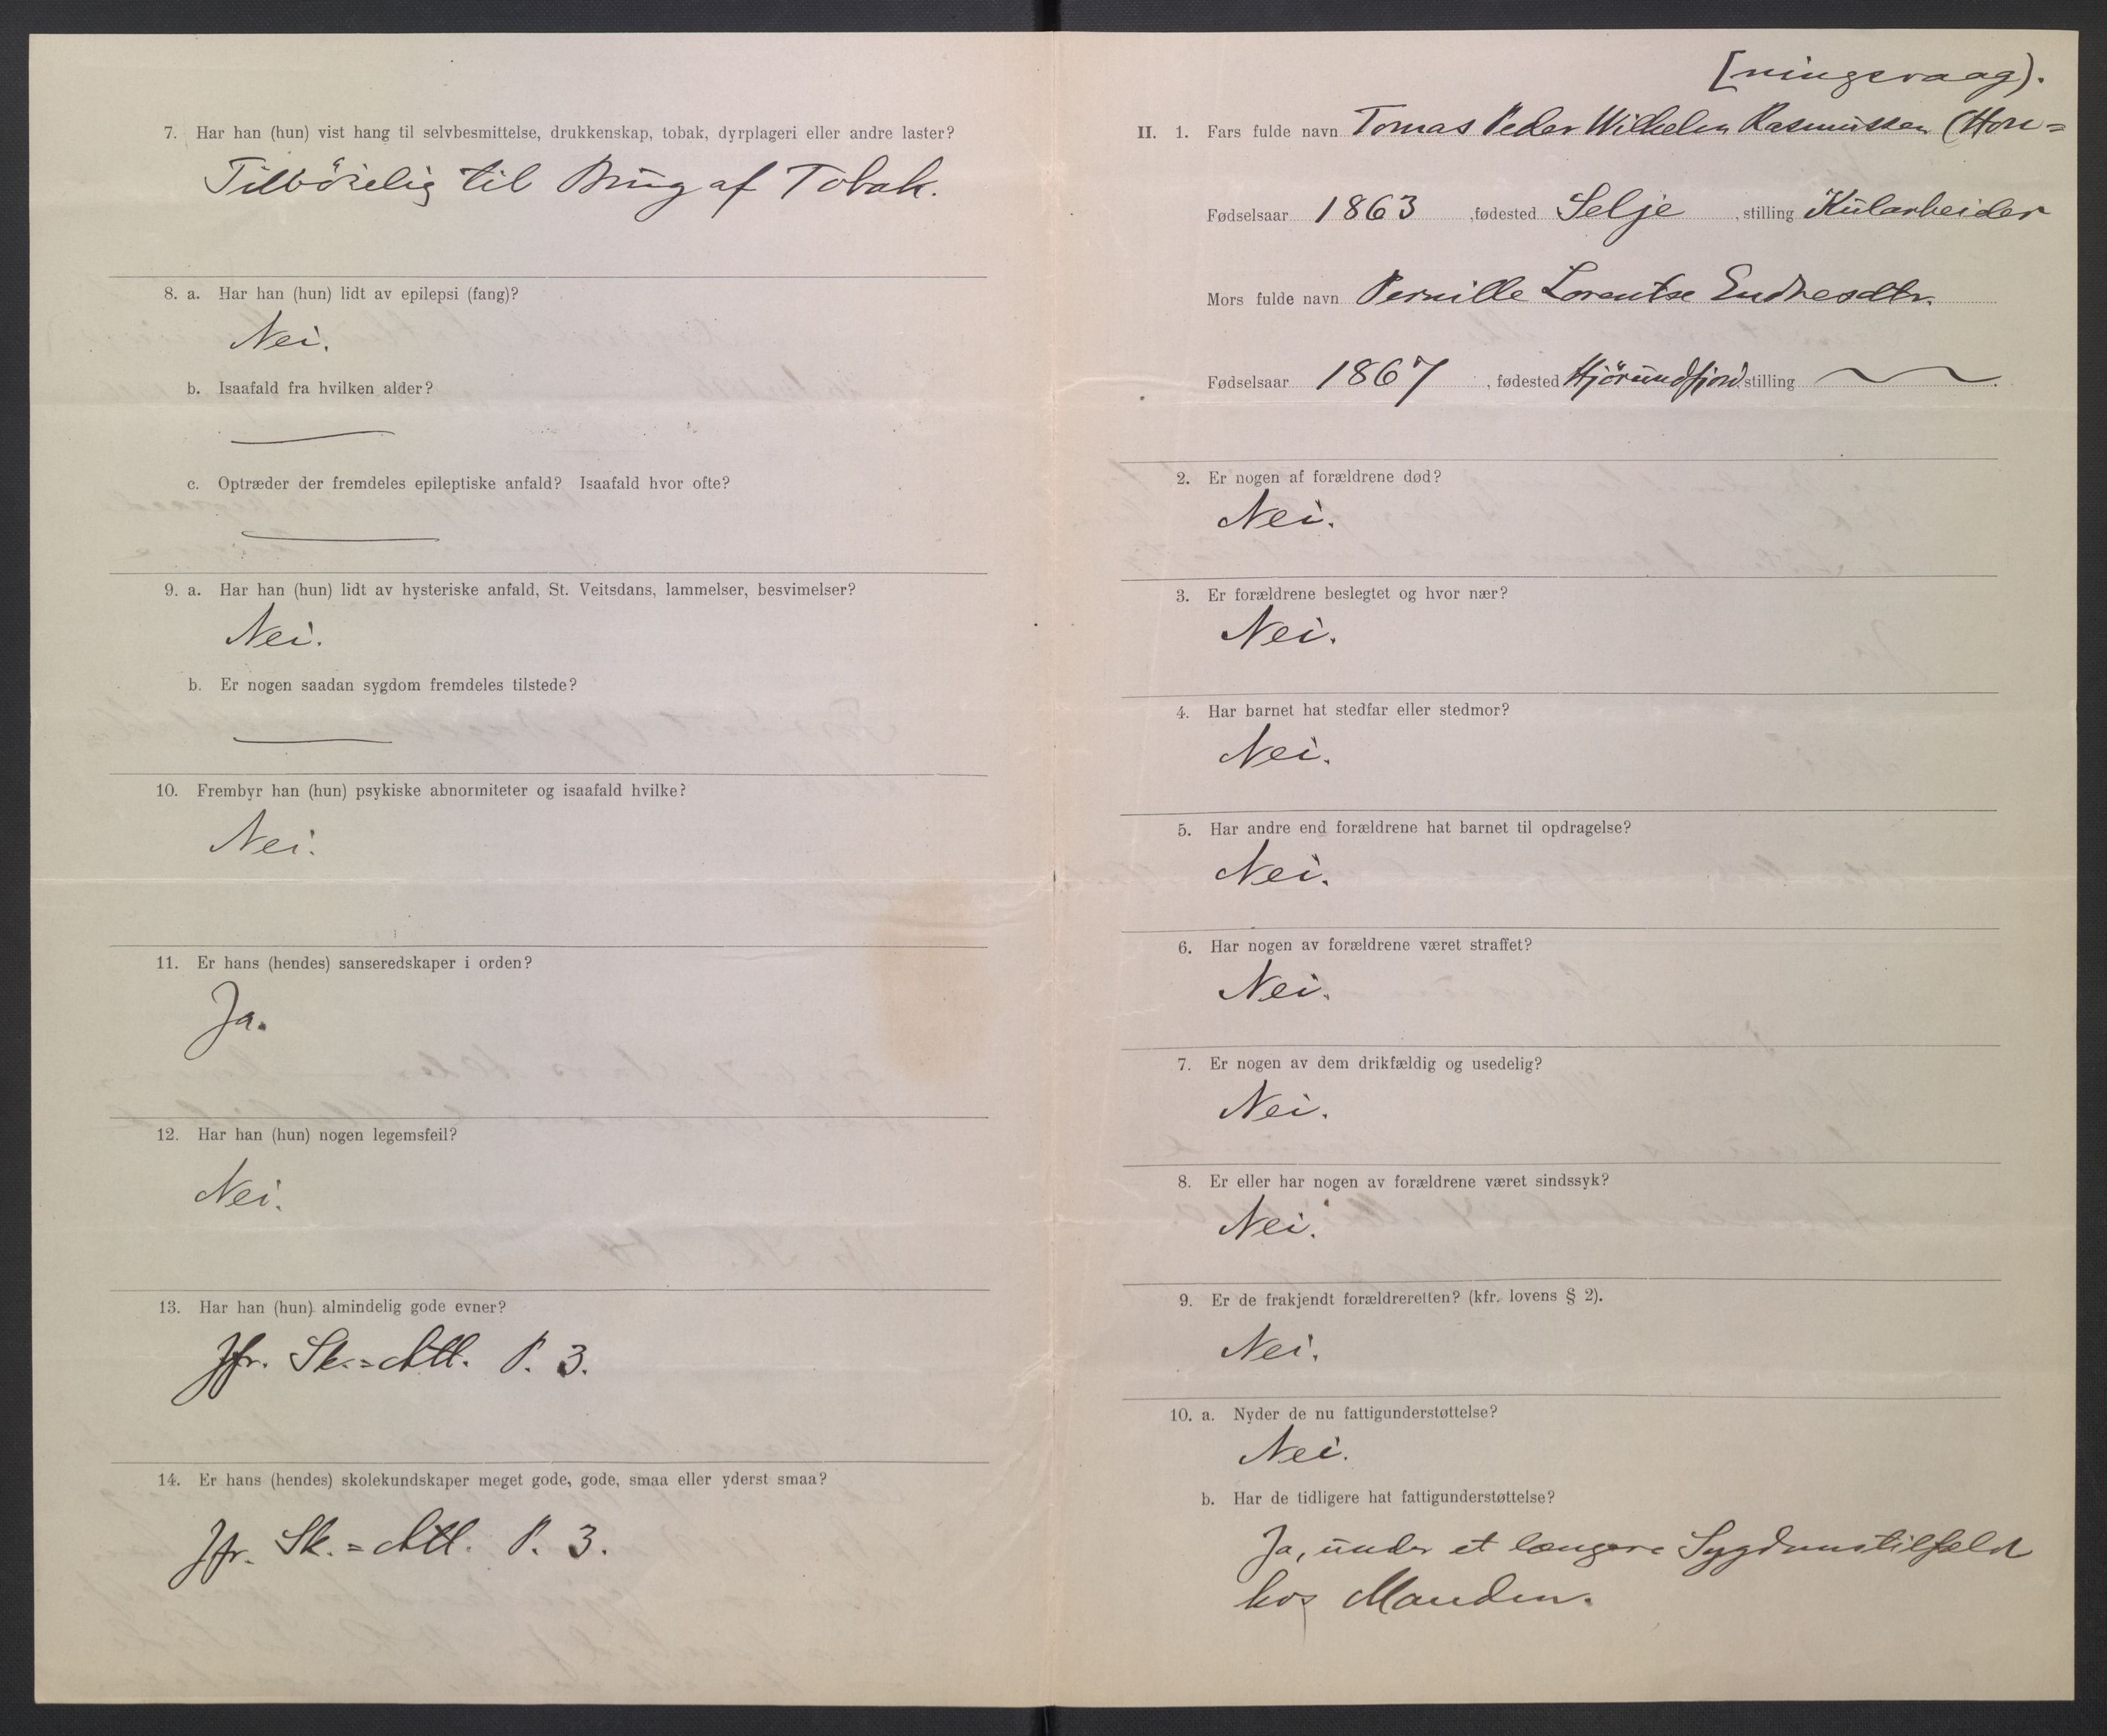 7. Har han (hun) vist hang til selvbesmittelse, drukkenskap, tobak, dyrplageri eller andre laster?
Tilbøielig til Brug af Tobak.
8. a. Har han (hun) lidt av epilepsi (fang)?
Nei.
b. Isaafald fra hvilken alder?
c. Optræder der fremdeles epileptiske anfald? Isaafald hvor ofte?
9. a. Har han (hun) lidt av hysteriske anfald, St. Veitsdans, lammelser, besvimelser?
Nei.
b. Er nogen saadan sygdom fremdeles tilstede?
10. Frembyr han (hun) psykiske abnormiteter og isaafald hvilke?
Nei.
11. Er hans (hendes) sanseredskaper i orden?
Ja.
12. Har han (hun) nogen legemsfeil?
Nei.
13. Har han (hun) almindelig gode evner?
Jfr. Sk.=Att. P. 3.
14. Er hans (hendes) skolekundskaper meget gode, gode, smaa eller yderst smaa?
Jfr. Sk.=Att. P. 3.
[ningsvaag).
II. 1. Fars fulde navn Tomas Peder Wilhelm Rasmussen (Hon=
Fødselsaar 1863, fødested Selje, stilling Kularbeider
Mors fulde navn Pernille Lorentse Endresdtr.
Fødselsaar 1867, fødested Hjörundfjord stilling
2. Er nogen af forældrene død?
Nei.
3. Er forældrene beslegtet og hvor nær?
Nei.
4. Har barnet hat stedfar eller stedmor?
Nei.
5. Har andre end forældrene hat barnet til opdragelse?
Nei.
6. Har nogen av forældrene været straffet?
Nei.
7. Er nogen av dem drikfældig og usedelig?
Nei.
8. Er eller har nogen av forældrene været sindssyk?
Nei.
9. Er de frakjendt forældreretten? (kfr. lovens § 2).
Nei.
10. a. Nyder de nu fattigunderstøttelse?
Nei.
b. Har de tidligere hat fattigunderstøttelse?
Ja, under et længere Sygdomstilfæld
hos Manden.